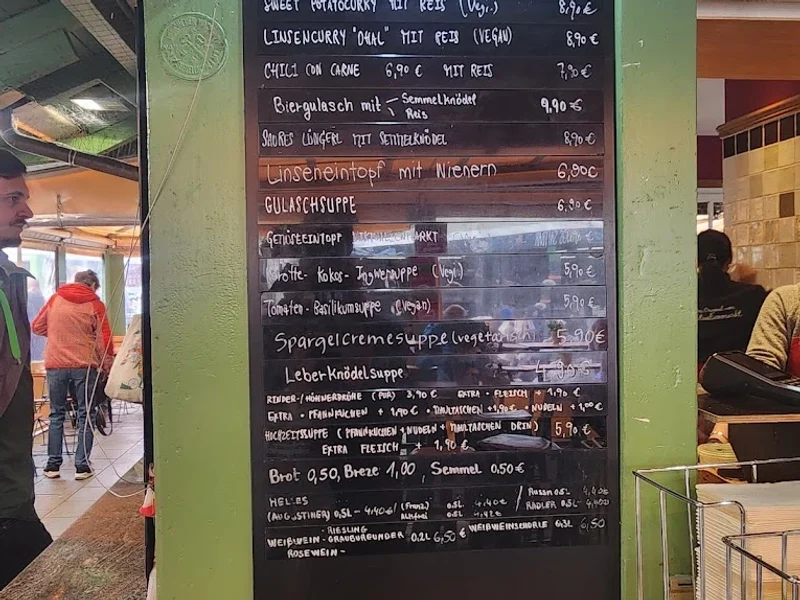 SWEET POTATOCURRY MIT REIS (Vegi.) 8,90 €
LINSENCURRY "DHAL" MIT REIS (VEGAN) 8,90 €
CHILI CON CARNE 6,90 € MIT REIS 7,90 €
Biergulasch mit Semmelknödel 9,90 €
Reis
SAURES LÜNGERL MIT SEMMELKNÖDEL 8,90 €
Linseneintopf mit Wienern 6,90€
GULASCHSUPPE 6,90 €
GEMÜSEEINTOPF
Kokos-Ingwersuppe (Vegi.) 5,90 €
Tomaten-Basilikumsuppe (Vegan) 5,90 €
Spargelcremesuppe (vegetarisch) 5,90€
Leberknödelsuppe 4,90€
RINDER-/HÜHNERBRÜHE (PUR) 3,90 € EXTRA FLEISCH + 1,90 €
EXTRA PFANNKUCHEN + 1,90 € MAULTASCHEN +1,90€ NUDELN +1,00€
HOCHZEITSSUPPE (PFANNKUCHEN+NUDELN+MAULTASCHEN DRIN) 5,90 €
EXTRA FLEISCH + 1,90 €
Brot 0,50, Breze 1,00, Semmel 0,50€
HELLES (Franz.) 0,5L 4,40€ / Russn 0,5L 4,40€
(AUGUSTINER) 0,5L - 4,40€ Alkfrei 0,5L 4,42€ RADLER 0,5L
RIESLING
WEIẞWEIN - GRAUBURGUNDER 0,2L 6,50 € WEIẞWEINSCHORLE 0,3L 6,50
ROSEWEIN -